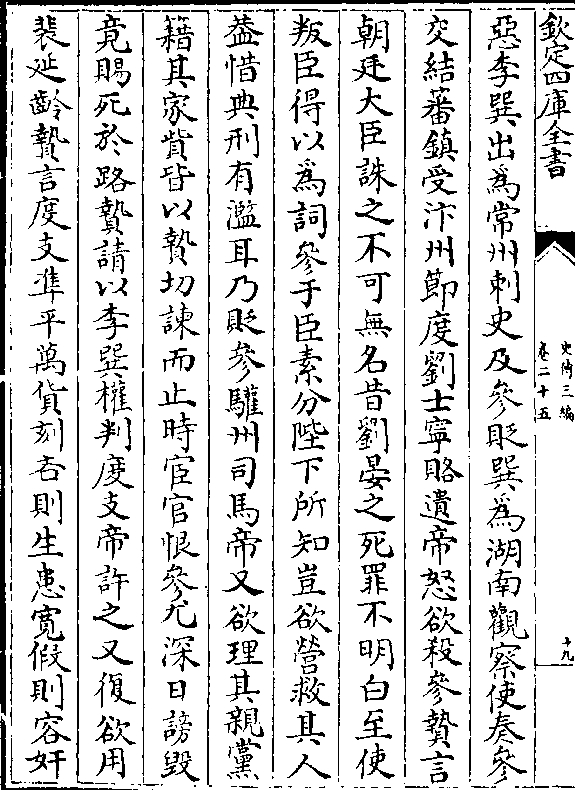 欽定四庫全書
史傳三編
卷二十五
十九
惡李巽出為常州刺史及參貶巽為湖南觀察使奏參
交結蕃鎮受汴州節度劉士寧賂遺帝怒欲殺參贄言
朝廷大臣誅之不可無名昔劉晏之死罪不明白至使
叛臣得以為詞參于臣素分陛下所知豈欲營救其人
葢惜典刑有濫耳乃貶參驩州司馬帝又欲理其親黨
籍其家貲皆以贄切諫而止時宦官恨參尤深日謗毁
竟賜死於路贄請以李巽權判度支帝許之又復欲用
裴延齡贄言度支凖平萬貨刻吝則生患寛假則容奸